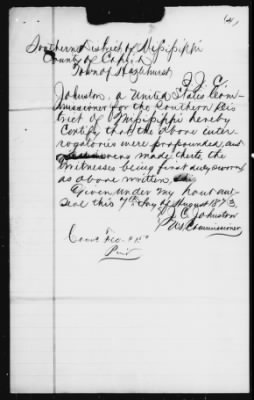 (4)
Southern District of Missippi
County of Copiah
Town of Hazlehurst
I, J. C.
Johnston, a United States Com-
missioner for the Southern Dis
trict of Missippi hereby
Certify that the above inter
rogatories were propounded, and
answers made thereto, the
Witnesses being first duly sworn
as above written,
Given under my hand and
seal this 7th day of August 1873.
J. C. Johnston
U.S. Commissioner
Paid